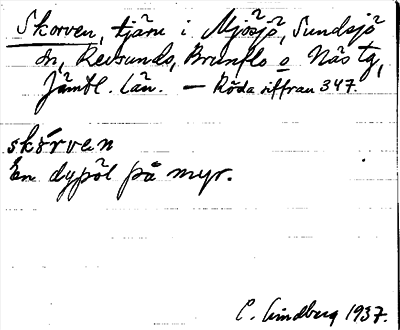 Skorven, tjärn i Mjösjö, Sundsjö
sn, Revsunds, Brunflo o Näs tg,
Jämtl. län. — Röda siffran 347.
skórven
En dypöl på myr.
C. Lindberg 1937.